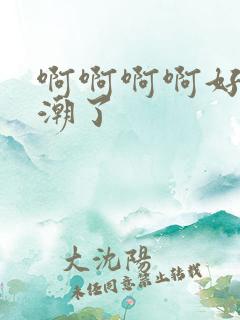 啊啊啊啊好
潮了
大沈陽
未经同意禁止转载